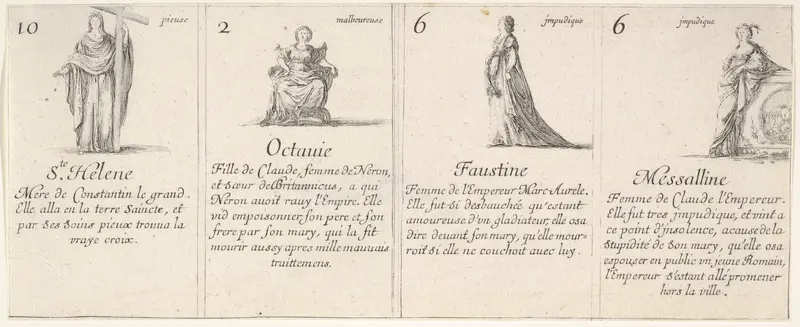 10
pieuse
Ste. Hélene
Mere de Constantin le grand.
Elle alla en la terre Saincte, et
par ses soins pieux trouua la
vraye croix.
2
malheureuse
Octauie
Fille de Claude, femme de Néron,
et sœur de Britannicus, a qui
Néron auoit rauy l'Empire. Elle
vid empoisonner son pere et son
frere par son mary, qui la fit
mourir aussy apres mille mauuais
traittemens.
6
jmpudique
Faustine
Femme de l'Empereur Marc-Aurele.
Elle fut si desbauchée qu'estant
amoureuse d'vn gladiateur elle osa
dire deuant son mary, qu'elle mour=
roit si elle ne couchoit avec luy.
6
jmpudique
Messalline
Femme de Claude l'Empereur.
Elle fut tres jmpudique, et vint a
ce point d'jnsolence, a cause de la
stupidité de son mary, qu'elle osa
espouser en public vn jeune Romain,
l'Empereur s'estant allé promener
hors la ville.